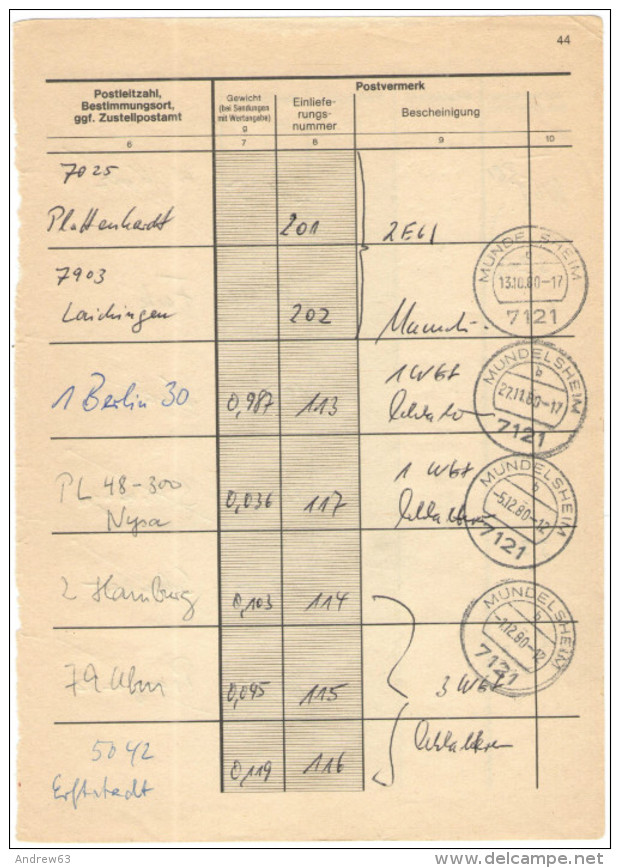 44
Postleitzahl,
Bestimmungsort,
ggf. Zustellpostamt
Gewicht
(bei Sendungen
mit Wertangabe)
g
Postvermerk
Einliefe-
rungs-
nummer
Bescheinigung
6 7 8 9 10
7025
Plattenhardt 201 2 E61
7903
Laichingen 202
MUNDELSHEIM
b
13.10.80-17
7121
1 Berlin 30 0,987 113 1 W61
MUNDELSHEIM
b
27.11.80-17
7121
PL 48-300
Nysa 0,036 117 1 W61
MUNDELSHEIM
b
-5.12.80-12
7121
2 Hamburg 0,103 114
MUNDELSHEIM
b
-1.12.80-12
7121
79 Ulm 0,095 115 3 W61
5042
Erftstadt 0,119 116
Andrew63
www.delcampe.net